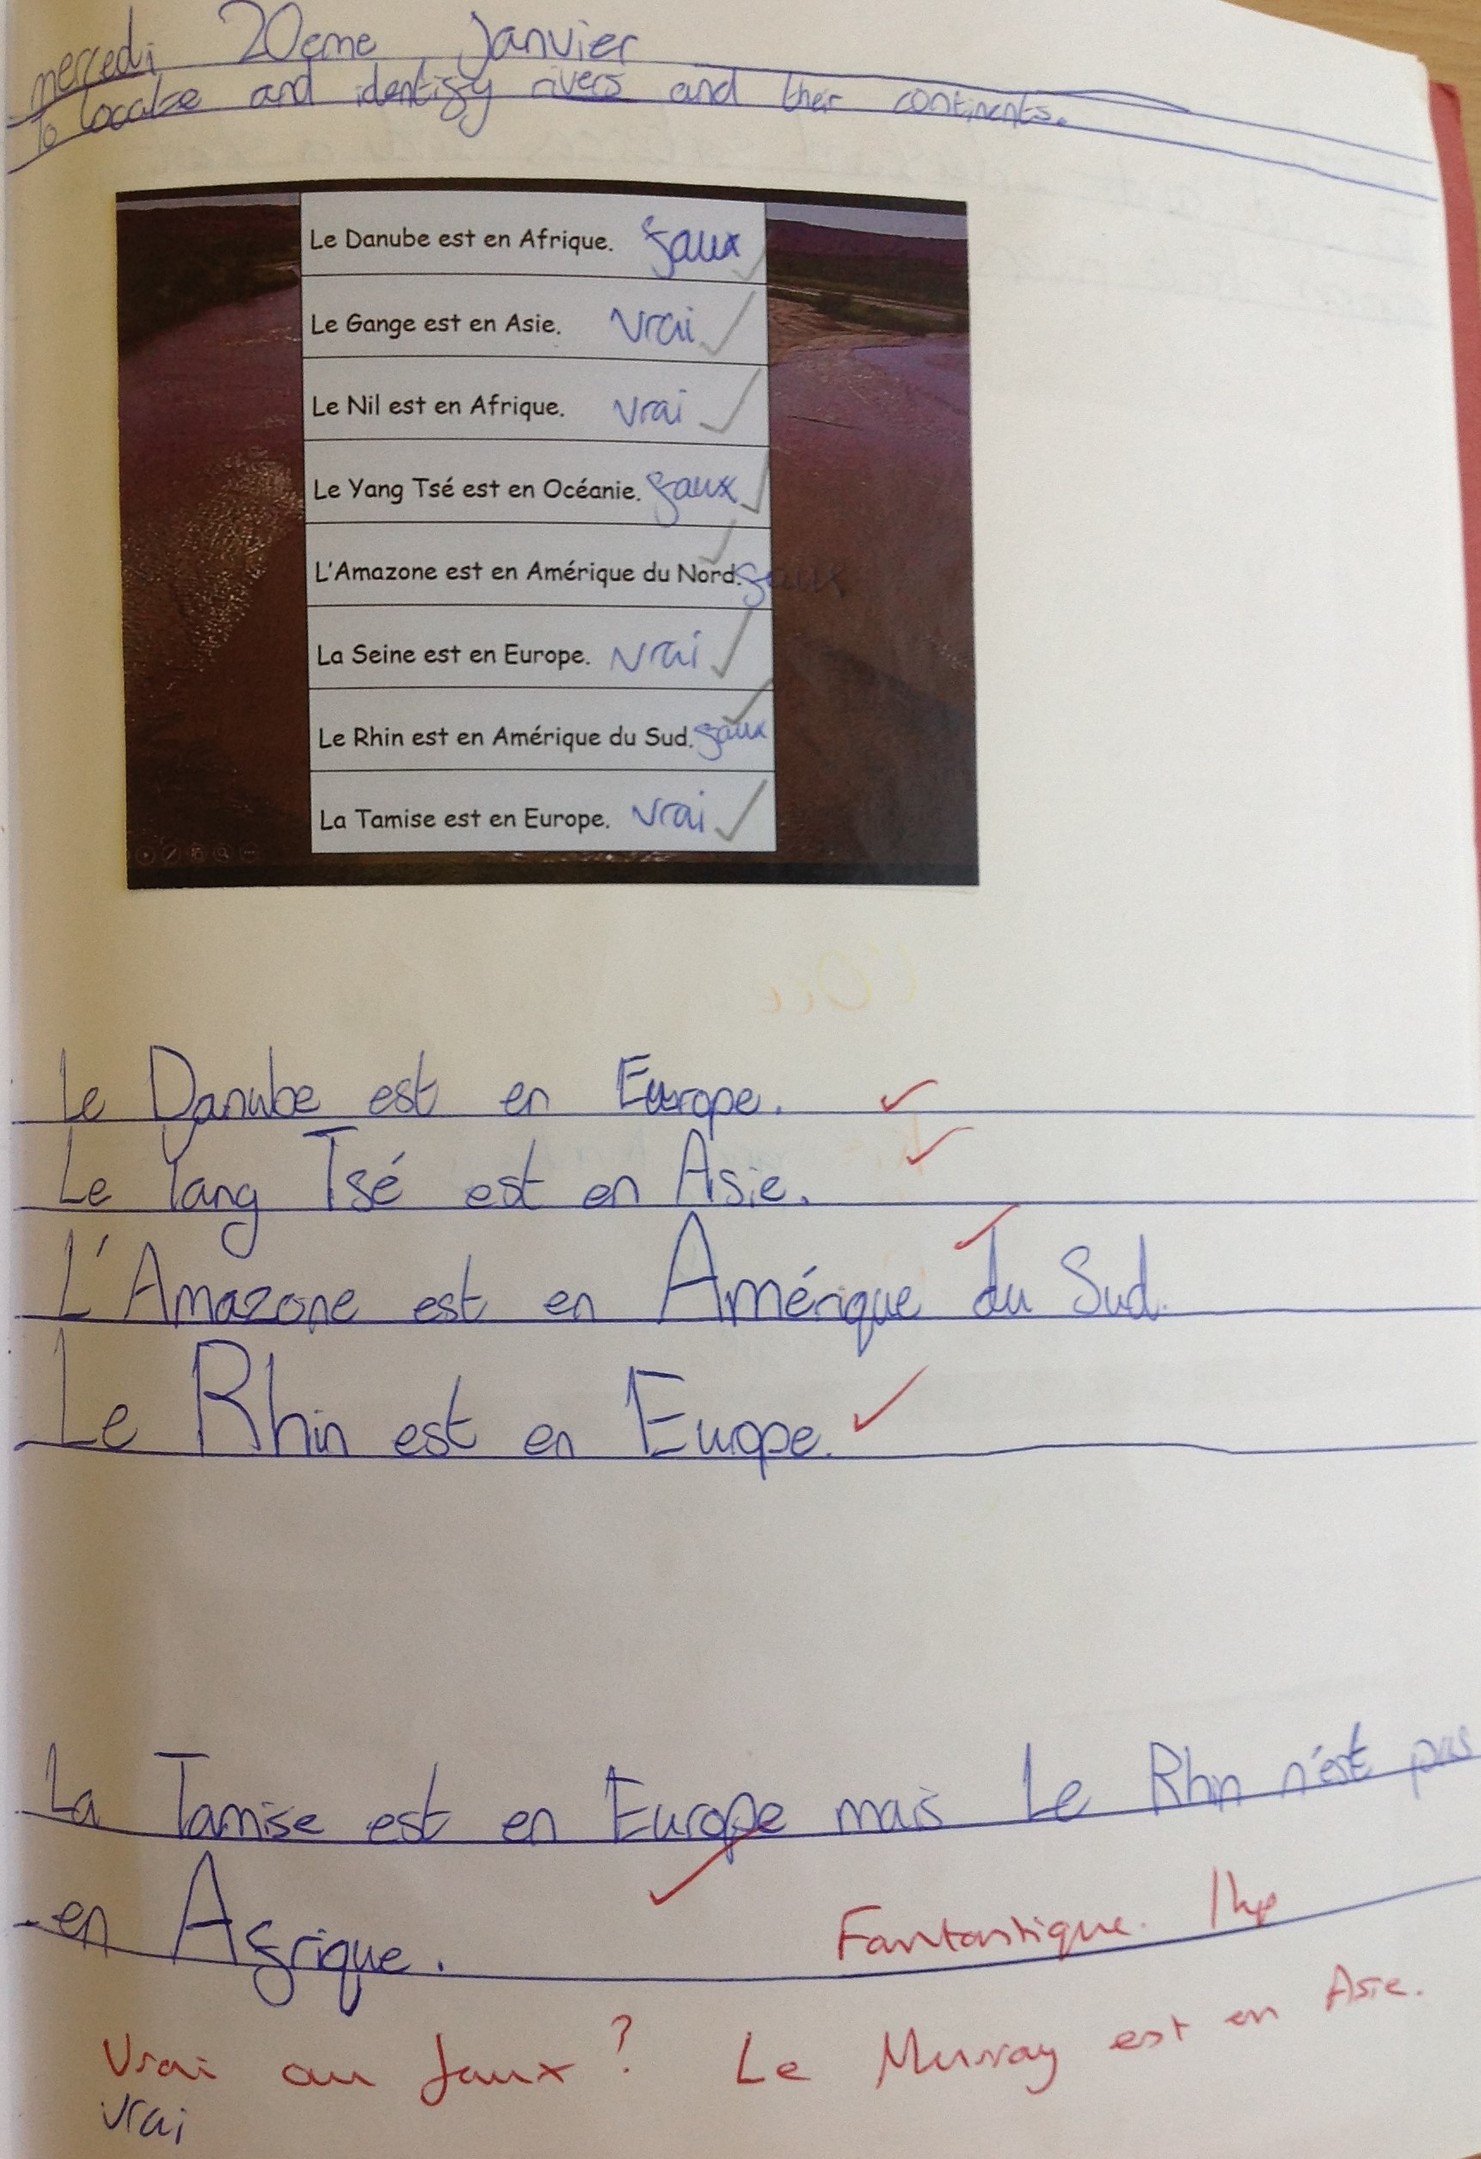 mercredi 20eme Janvier
To localse and identify rivers and their continents.
Le Danube est en Afrique. faux
Le Gange est en Asie. vrai
Le Nil est en Afrique. vrai
Le Yang Tsé est en Océanie. faux
L'Amazone est en Amérique du Nord. faux
La Seine est en Europe. vrai
Le Rhin est en Amérique du Sud. faux
La Tamise est en Europe. vrai
Le Danube est en Europe.
Le Yang Tsé est en Asie.
L'Amazone est en Amérique du Sud.
Le Rhin est en Europe.
La Tamise est en Europe mais Le Rhin n'est pas
en Afrique.
Fantastique. 1hp
Vrai ou faux? Le Murray est en Asie.
vrai